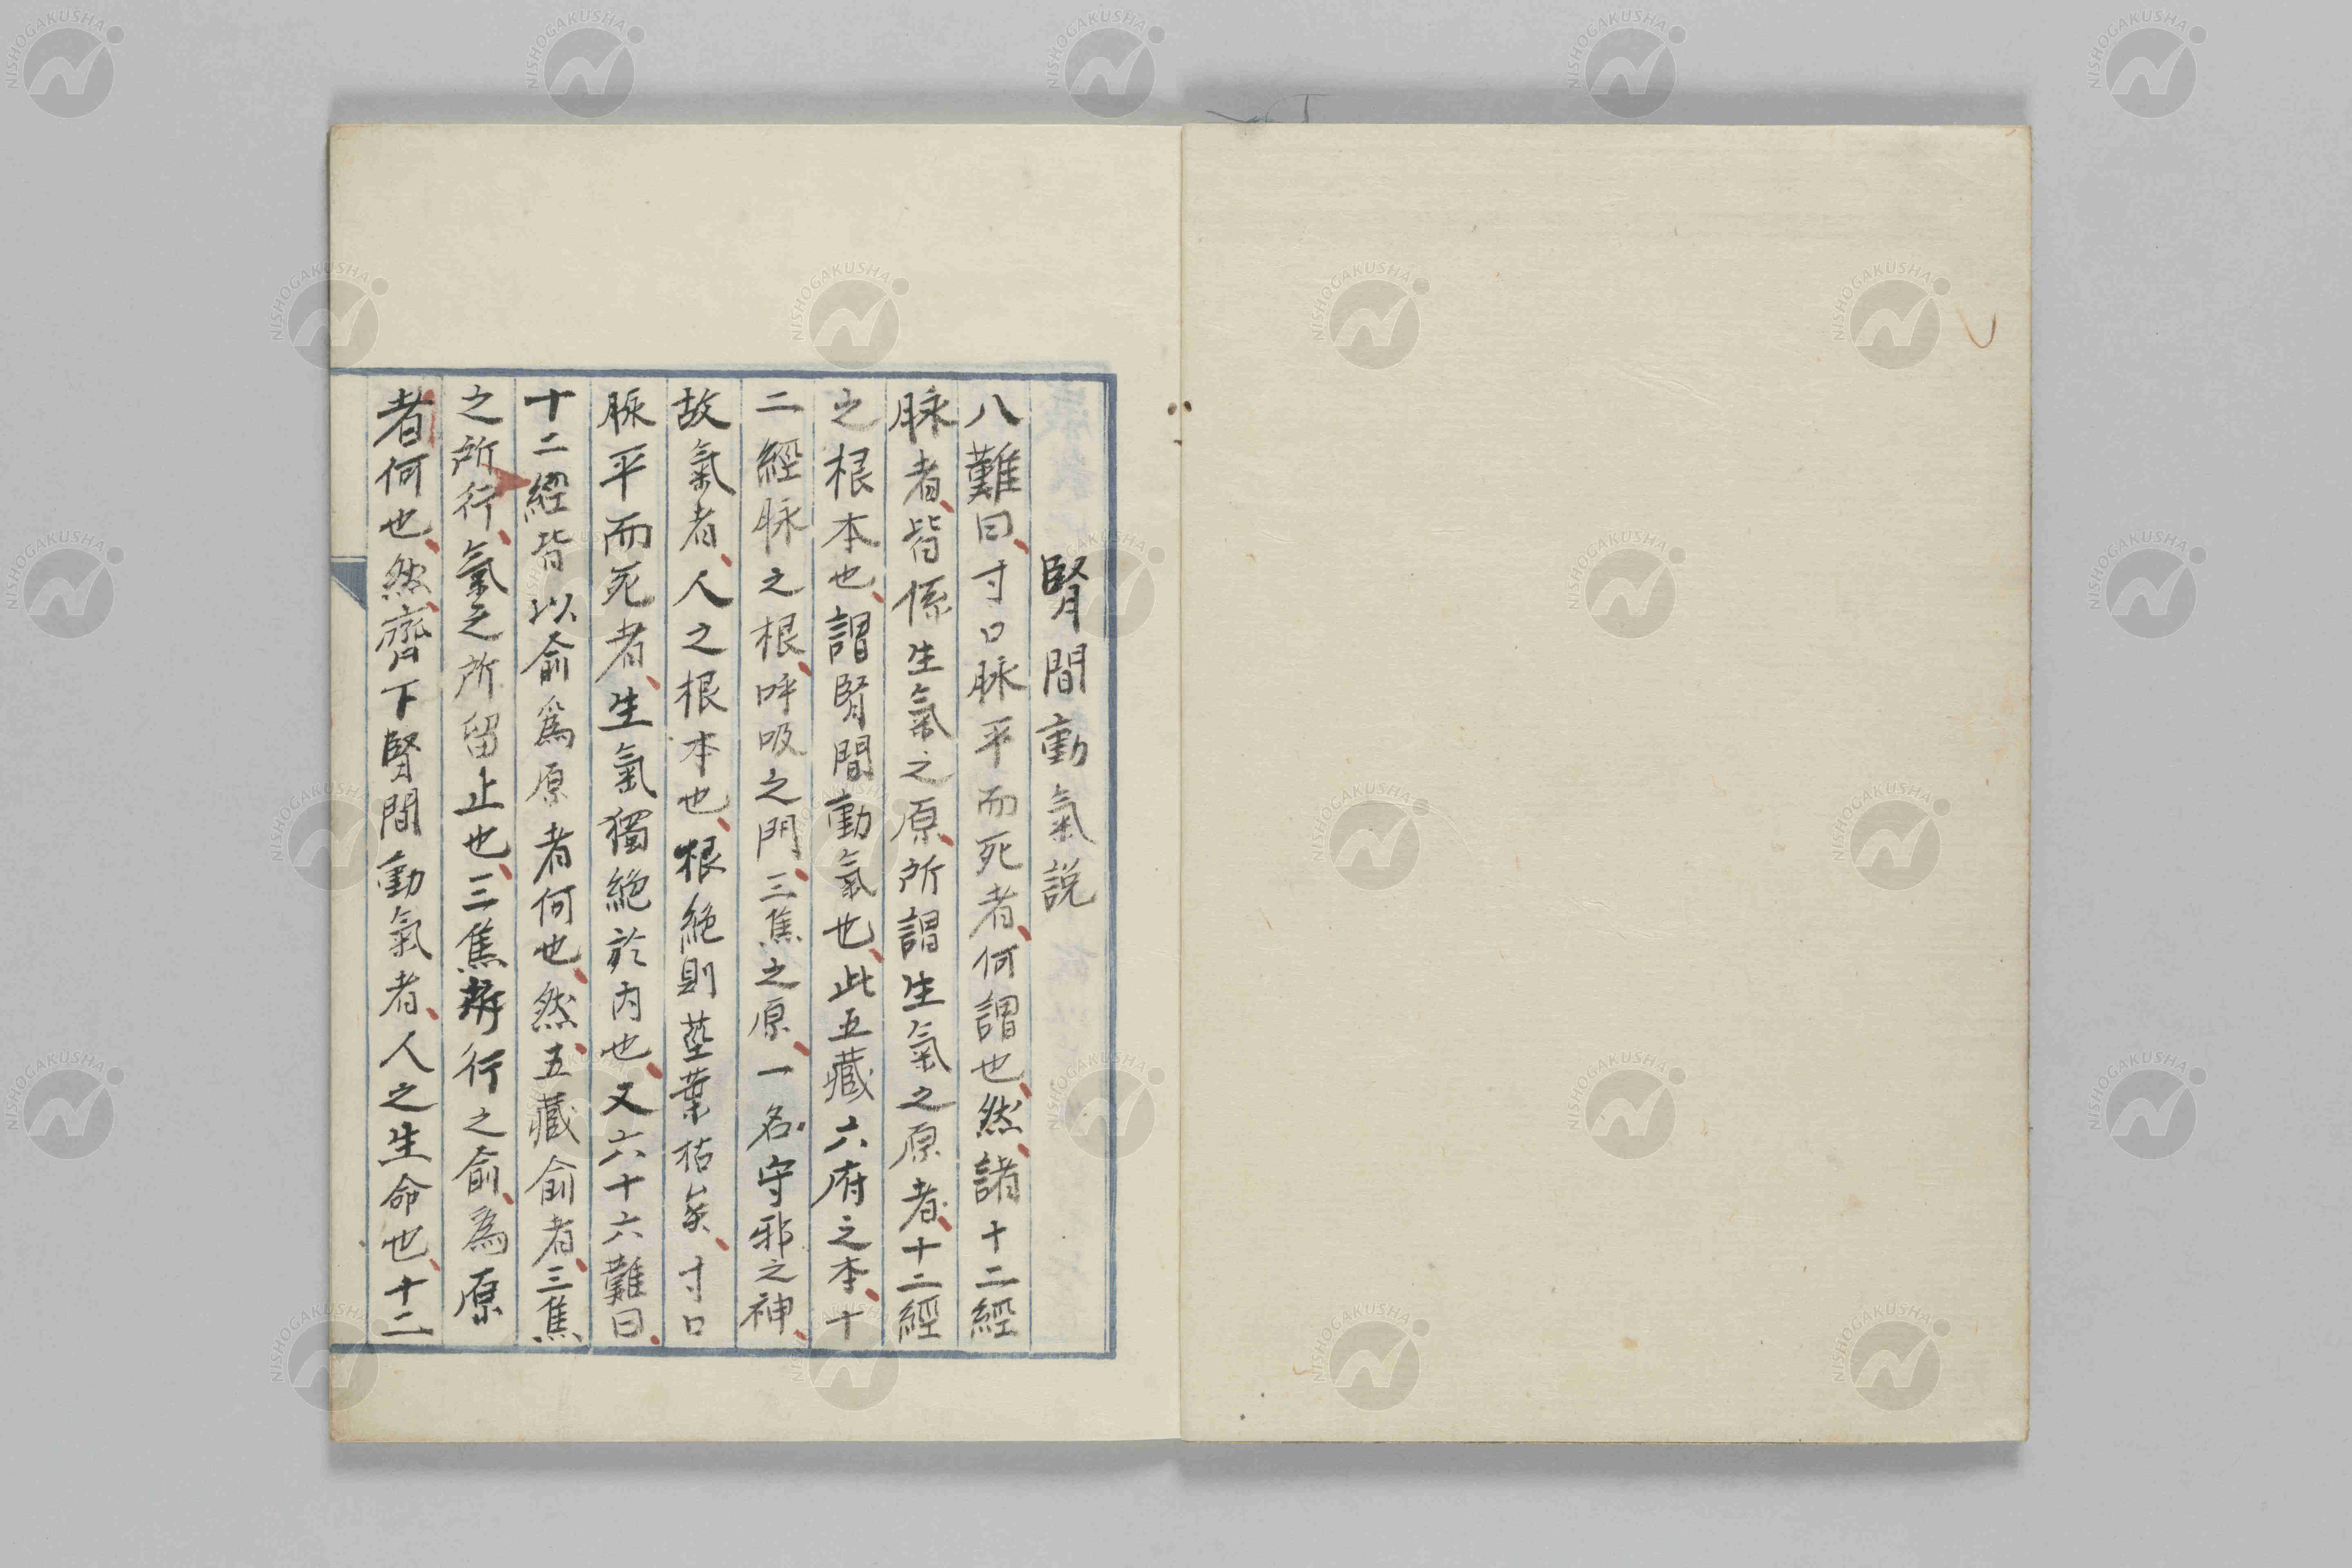 腎間動氣説
八難曰、寸口脉平而死者、何謂也、然、諸十二經
脉者、皆係生氣之原、所謂生氣之原者、十二經
之根本也、謂腎間動氣也、此五藏六府之本、十
二經脉之根、呼吸之門、三焦之原、一名守邪之神、
故氣者、人之根本也、根絶則莖葉枯矣、寸口
脉平而死者、生氣獨絶於内也、又六十六難曰、
十二經皆以俞爲原者何也、然、五藏俞者、三焦
之所行、氣之所留止也、三焦所行之俞、為原
者何也、然、齊下腎間動氣者、人之生命也、十二
NISHOGAKUSHA